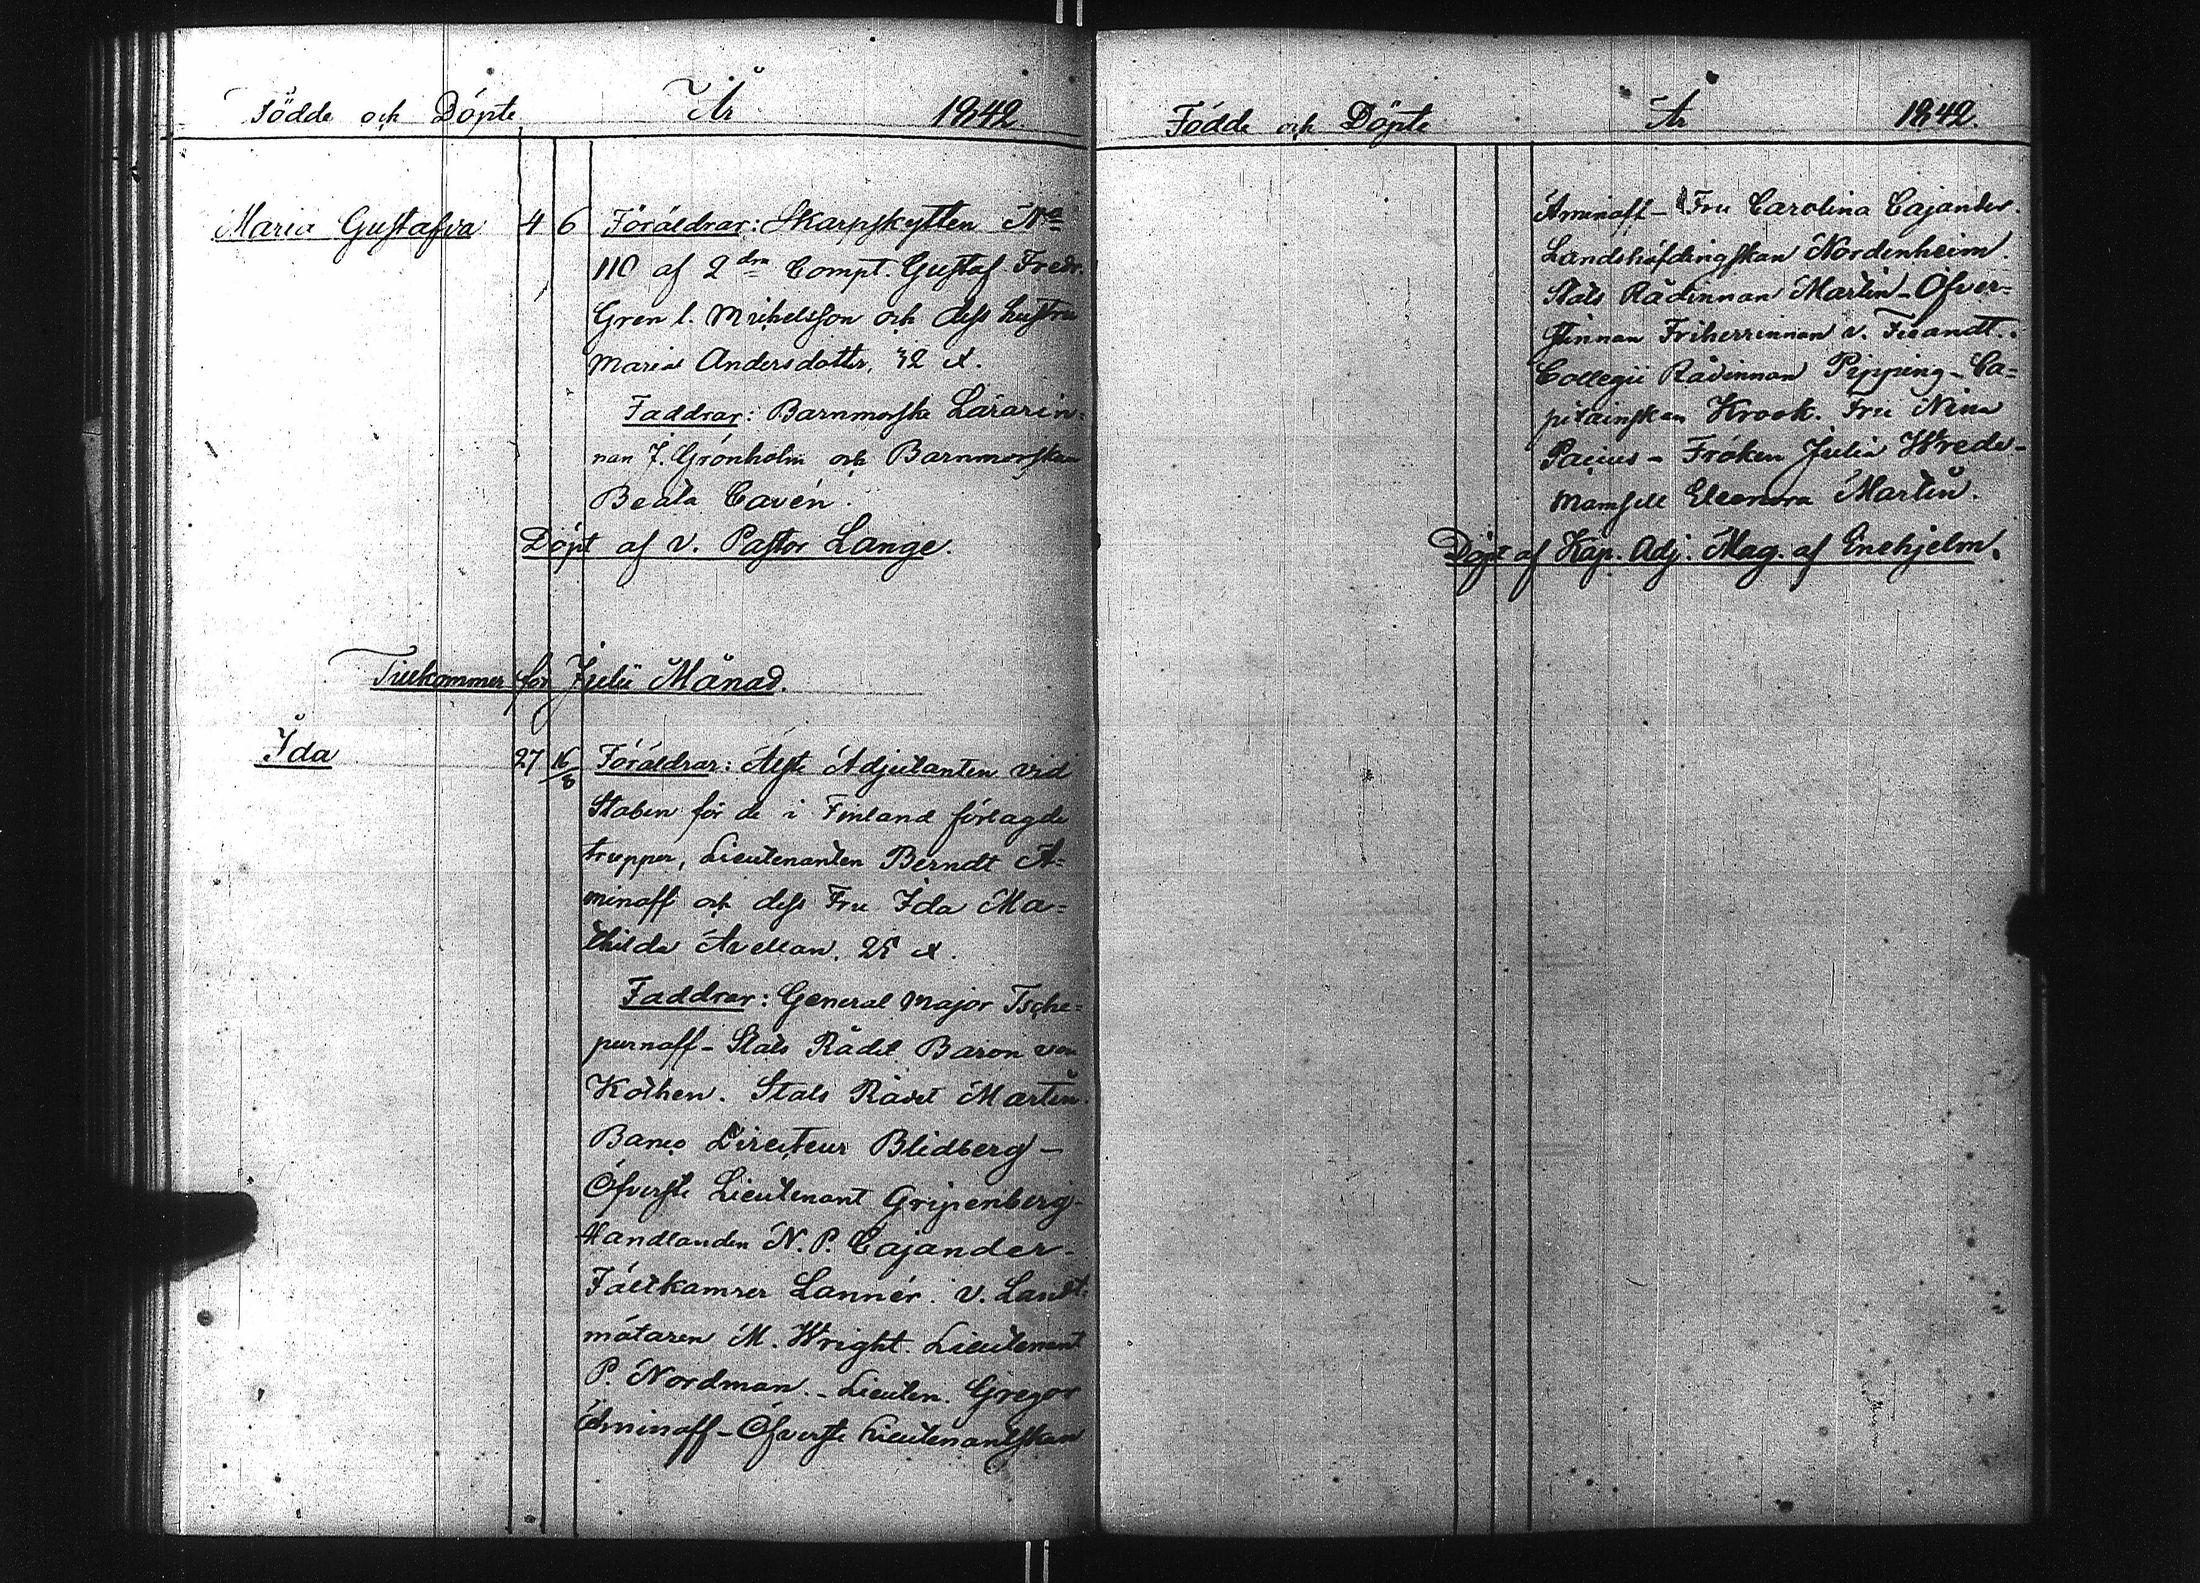 Födde och Döpte År 1842
Maria Gustafva 4 6 Föräldrar: Skarpskytten No
110 af 2dra Compt. Gustaf Fredr.
Gren l. Michelsson och dess hustru
Maria Andersdotter, 32 år.
Faddrar: Barnmorske Lärarin=
nan J. Grönholm och Barnmorskan
Beata Cavén.
Döpt af v. Pastor Lange.
Tillkommer för Julii Månad.
Ida 27 16/8 Föräldrar: Äldste Adjutanten vid
Staben för de i Finland förlagde
trupper, Lieutenanten Berndt A=
minoff och dess Fru Ida Ma=
thilda Avellan, 25 år.
Faddrar: General Major Tsche=
purnoff - Stats Rådet Baron von
Kothen. Stats Rådet Martin.
Banco Directeur Blidberg -
Öfverste Lieutenant Gripenberg -
Handlanden N. P. Cajander -
Fältkamrer Lannér. v. Landt=
mätaren M. Wright. Lieutenant
P. Nordman. - Lieuten. Gregor
Aminoff - Öfverste Lieutenantskan
Födde och Döpte År 1842.
Aminoff - Fru Carolina Cajander.
Landshöfdingskan Nordenheim.
Stats Rådinnan Martin - Öfver=
stinnan Friherrinnan v. Fieandt.
Collegii Rådinnan Pipping - Ca=
pitainskan Krook. Fru Nina
Pacius - Fröken Julia Wrede -
Mamsell Eleonora Martin.
Döpt af Kap. Adj. Mag. af Enehjelm.